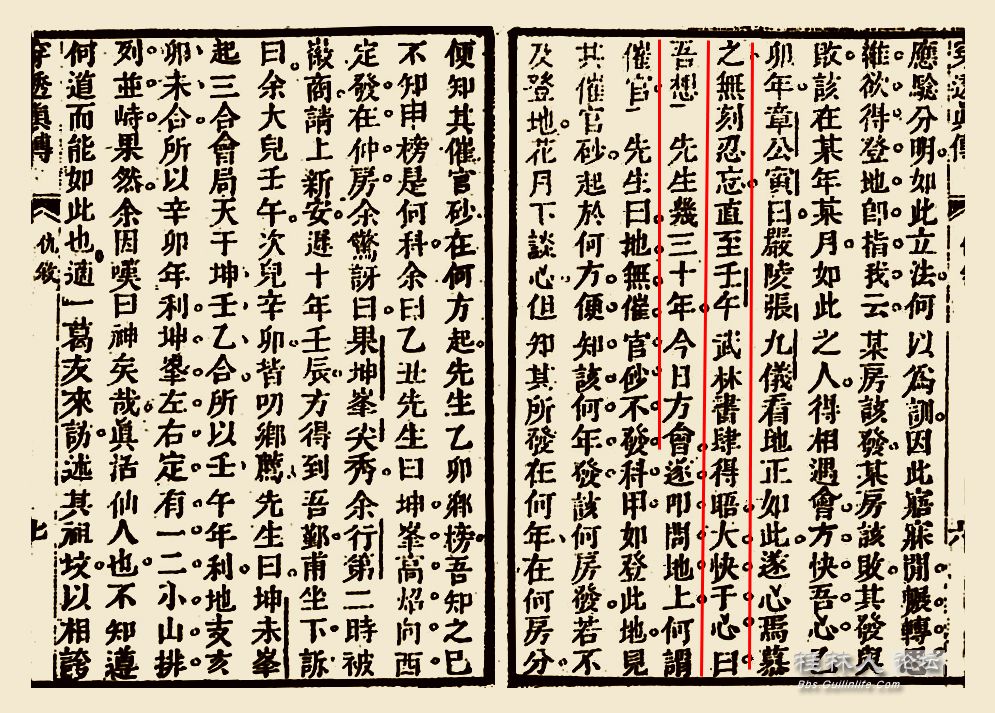 應驗分明如此立法何以為訓因此寤寐閒輾轉思
雖欲得登地即指我云某房該發某房該敗其發與
敗該在某年某月如此之人得相遇會方快吾心乙
卯年章公寅曰嚴陵張九儀看地正如此遂心焉慕
之無刻忍忘直至壬午武林書肆得晤大快于心曰
吾想 先生幾三十年今日方會遂叩問地上何謂
催官 先生曰地無催官砂不發科甲如登此地見
其催官砂起於何方便知該何年發該何房發若不
及登地花月下談心但知其所發在何年在何房分
便知其催官砂在何方起先生乙卯鄉榜吾知之已
不知申榜是何科余曰乙丑先生曰坤峯高焰向西
定發在仲房余驚訝曰果坤峯尖秀余行第二時被
徽商請上新安遲十年壬辰方得到吾鄞甫坐下訴
曰余大兒壬午次兒辛卯皆叨鄉薦先生曰坤未峯
起三合會局天干坤壬乙合所以壬午年利地亥亥
卯未合所以辛卯年利坤峯左右定有一二小山排
列並峙果然余因嘆曰神矣哉真活仙人也不知遵
何道而能如此也適一葛友來訪述其祖坟以相誇
穿透真傳 仇敘 七
桂林人论坛
Bbs.Guilinlife.Com